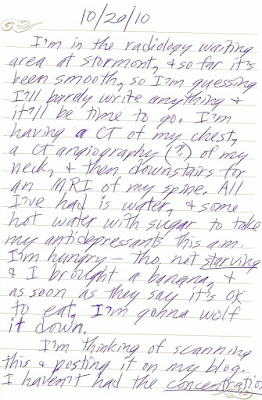 10/20/10
I'm in the radiology waiting
area at stormont, & so far it's
been smooth, so I'm guessing
I'll bardy write anything &
it'll be time to go. I'm
having a CT of my chest,
a CT angiography (?) of my
neck, & then downstairs for
an MRI of my spine. All
I've had is water, & some
hot water with sugar to take
my antidepressants this am.
I'm hungry – tho not starving
& I brought a banana, &
as soon as they say it's ok
to eat, I'm gonna wolf
it down.
I'm thinking of scanning
this & posting it on my blog.
I haven't had the concentratio